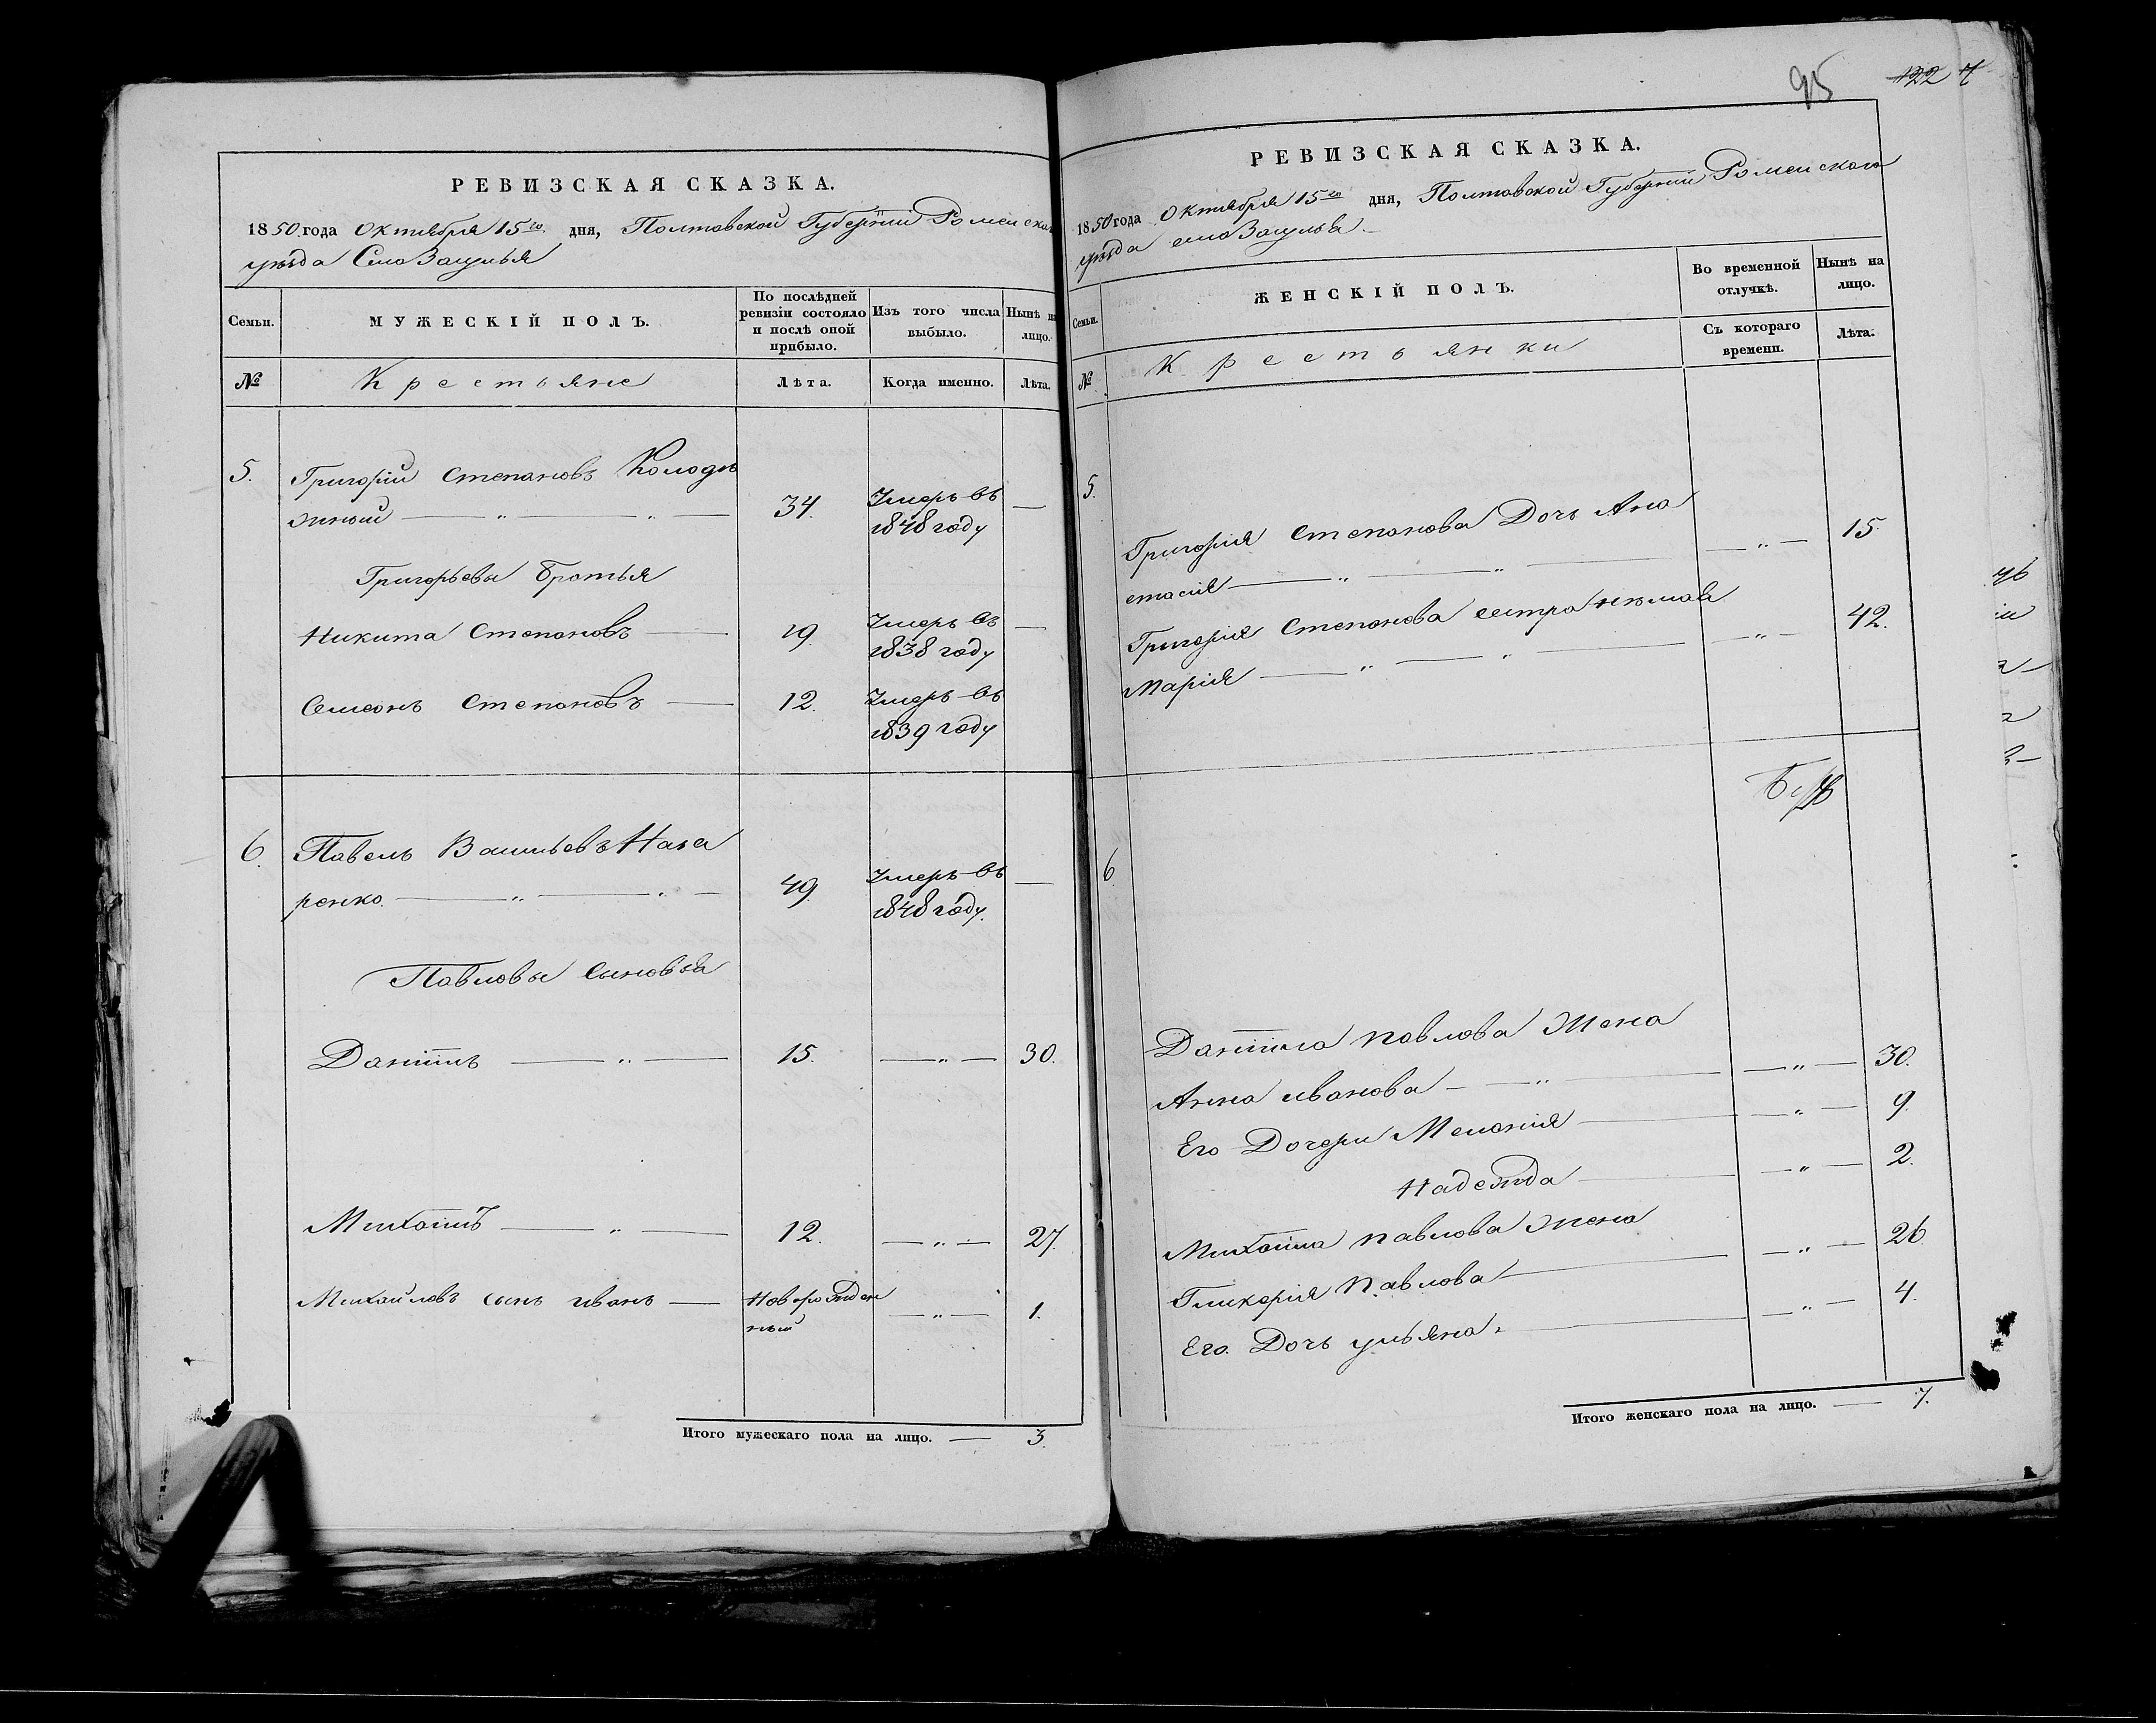 РЕВИЗСКАЯ СКАЗКА.
1850 года Октября 15го дня, Полтавской Губернии Роменскаго
уѣзда Села Засулья
Семьи.
МУЖЕСКІЙ ПОЛЪ.
По послѣдней
ревизіи состояло
и послѣ оной
прибыло.
Изъ того числа
выбыло.
Нынѣ на
лицо.
№
Крестьяне
Лѣта.
Когда именно.
Лѣта.
5. Григорій Степановъ Колодя
жный — „ — „ — 34. Умеръ въ —
1848 году
Григорьевы братья
Никита Степановъ — 19. Умеръ въ —
1838 году
Семенъ Степановъ — 12. Умеръ въ
1839 году
6. Павелъ Васильевъ Наза
ренко. — „ — „ — 49. Умеръ въ —
1848 году.
Павловы сыновья
Даніилъ — „ — 15. — „ — 30.
Михаилъ — „ — 12. — „ — 27.
Михайловъ сынъ иванъ — Новорожден — „ — 1.
ный
Итого мужескаго пола на лицо. — 3.
95 122 7
РЕВИЗСКАЯ СКАЗКА.
1850 года Октября 15го дня, Полтавской Губерніи Роменскаго
уѣзда села Засулья —
Семьи.
ЖЕНСКІЙ ПОЛЪ.
Во временной
отлучкѣ.
Нынѣ на
лицо.
Съ котораго
времени.
Лѣта.
№
Крестьянки
5.
Григорія Степанова Дочь Ана
стасія — „ — „ — — „ — 15.
Григорія Степанова сестра немая
Марія — „ — „ — — „ — 42.
6.
Даніила павлова жена
Анна иванова — „ — — „ — 30.
Его Дочери Меланія — — „ — 9.
Надежда — — „ — 2.
Михаила павлова жена
Гликерія Павлова — — „ — 26.
Его Дочь ульяна. — — „ — 4.
Итого женскаго пола на лицо. — 7.